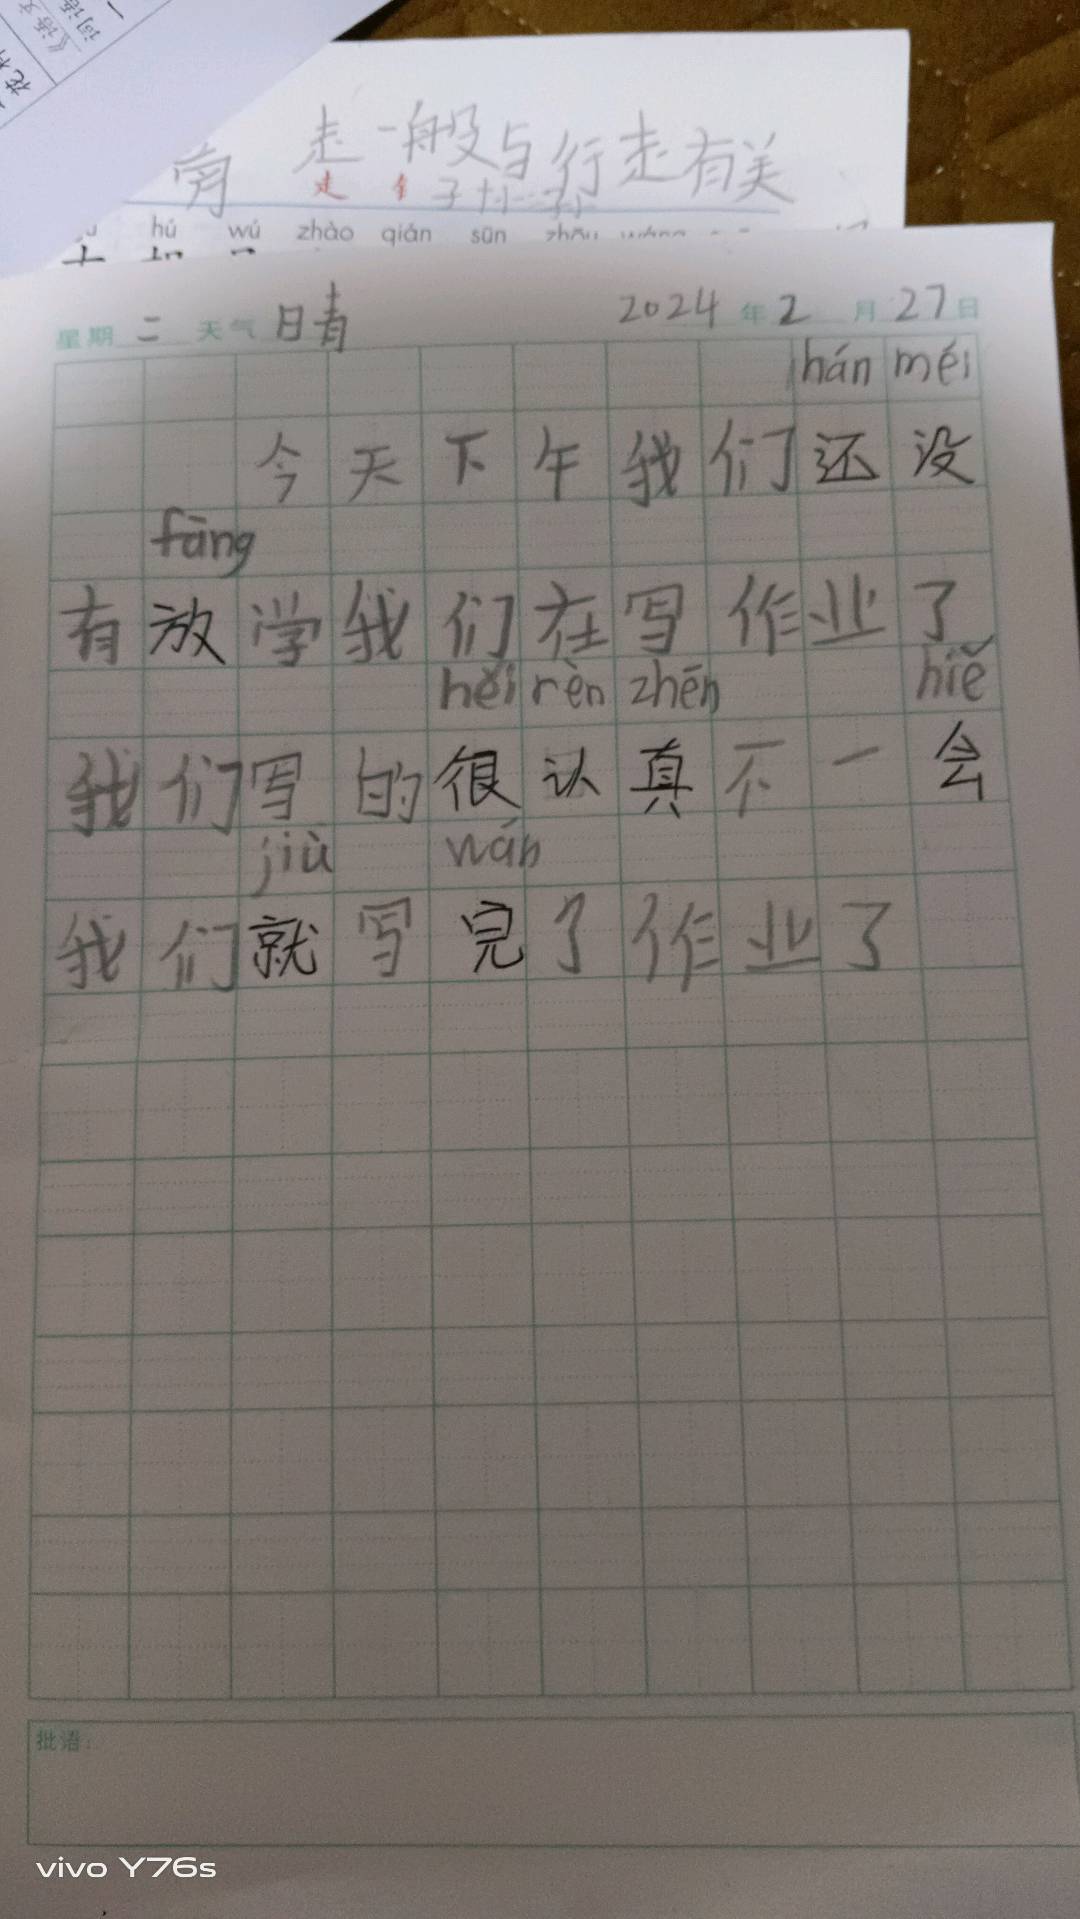 《语文
词语
南 走一般与行走有关
走 钅 子十小一孙
hú wú zhào qián sūn zhōu wáng
星期 二 天气 晴 2024 年 2 月 27 日
hán méi
今天下午我们还没
fāng
有放学我们在写作业了
hěi rèn zhēn hiě
我们写的很认真不一会
jiù wán
我们就写完了作业了
批语：
vivo Y76s